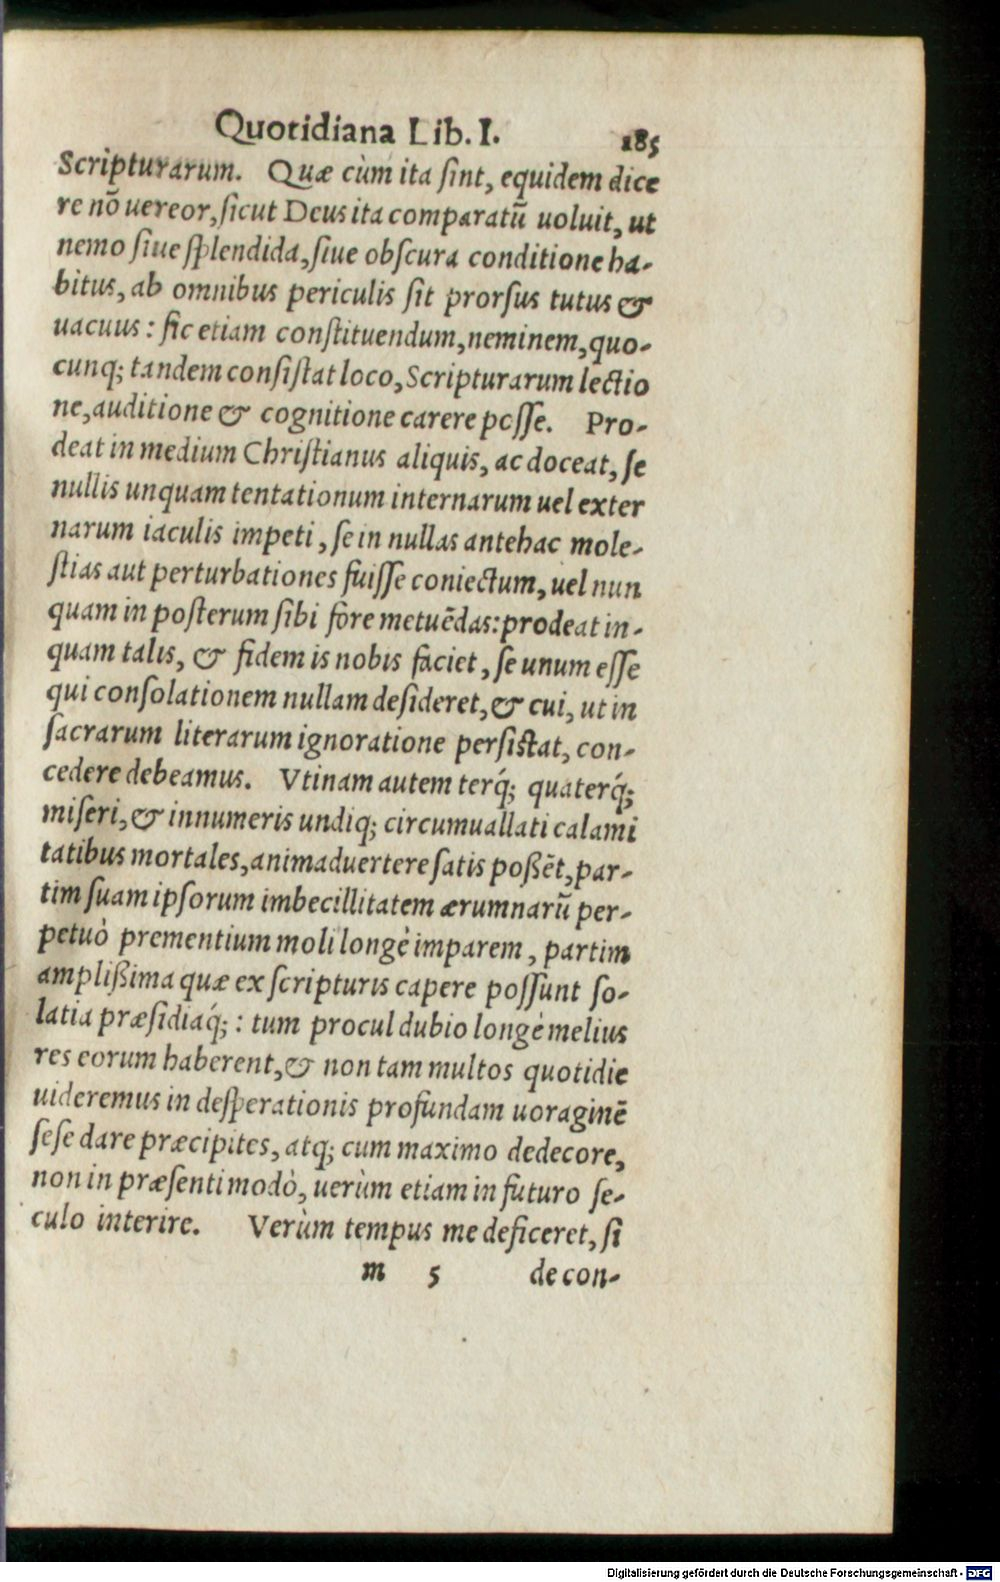 Quotidiana Lib. I. 185
Scripturarum. Quæ cùm ita ſint, equidem dice
re nõ uereor, ſicut Deus ita comparatũ uoluit, ut
nemo ſiue ſplendida, ſiue obſcura conditione ha-
bitus, ab omnibus periculis ſit prorſus tutus &
uacuus: ſic etiam conſtituendum, neminem, quo-
cunq; tandem conſiſtat loco, Scripturarum lectio
ne, auditione & cognitione carere poſſe. Pro-
deat in medium Chriſtianus aliquis, ac doceat, ſe
nullis unquam tentationum internarum uel exter
narum iaculis impeti, ſe in nullas antehac mole-
ſtias aut perturbationes fuiſſe coniectum, uel nun
quam in poſterum ſibi fore metuẽdas: prodeat in-
quam talis, & fidem is nobis faciet, ſe unum eſſe
qui conſolationem nullam deſideret, & cui, ut in
ſacrarum literarum ignoratione perſiſtat, con-
cedere debeamus. Vtinam autem terq́; quaterq́;
miſeri, & innumeris undiq; circumuallati calami
tatibus mortales, animaduertere ſatis poßẽt, par-
tim ſuam ipſorum imbecillitatem ærumnarũ per-
petuò prementium moli longè imparem, partim
amplißima quæ ex ſcripturis capere poſſunt ſo-
latia præſidiaq́;: tum procul dubio longè melius
res eorum haberent, & non tam multos quotidie
uideremus in deſperationis profundam uoraginẽ
ſeſe dare præcipites, atq; cum maximo dedecore,
non in præſenti modò, uerùm etiam in futuro ſe-
culo interire. Verùm tempus me deficeret, ſi
m 5 de con-
Digitalisierung gefördert durch die Deutsche Forschungsgemeinschaft - DFG